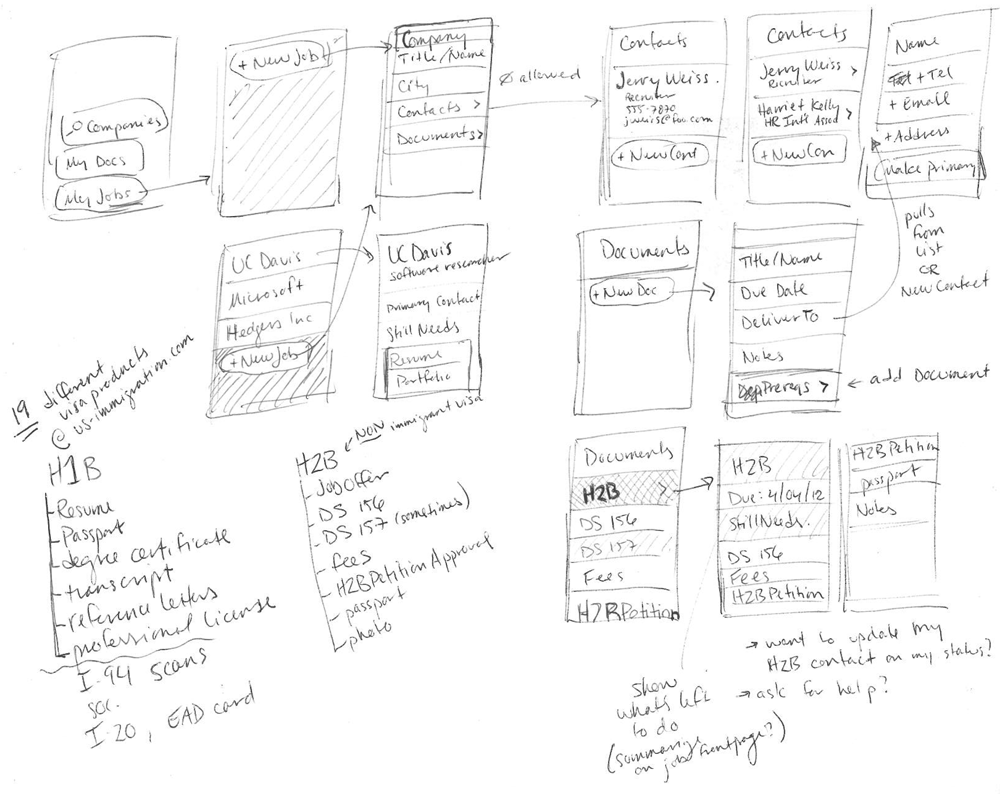 Companies
My Docs
My Jobs
+ New Job
Company
Title/Name
City
Contacts >
Documents >
Ø allowed
Contacts
Jerry Weiss
Recruiter
555-7870
jweiss@foo.com
+ New Cont
Contacts
Jerry Weiss >
Recruiter
Harriet Kelly >
HR Int'l Assoc
+ New Con
Name
+ Tel
+ Email
+ Address
Make Primary
pulls
from
List
OR
New Contact
UC Davis
Microsoft
Hedgers Inc
+ New Job
UC Davis
software researcher
Primary Contact
Still Needs
Resume
Portfolio
Documents
+ New Doc
Title/Name
Due Date
Deliver To
Notes
Prereqs >
← add Document
19 different
visa products
@ us-immigration.com
H1B
Resume
Passport
degree certificate
transcript
reference letters
professional license
I-94 scans
soc.
I-20, EAD card
H2B ← NON immigrant visa
Job Offer
DS 156
DS 157 (sometimes)
fees
H2B Petition Approval
passport
photo
Documents
H2B >
DS 156
DS 157
Fees
H2B Petition
H2B
Due: 4/04/12
Still Needs.
DS 156
Fees
H2B Petition
H2B Petition
passport
Notes
show
what's left
to do
(summarize
on jobs frontpage?)
→ want to update my
H2B contact on my status?
→ ask for help?